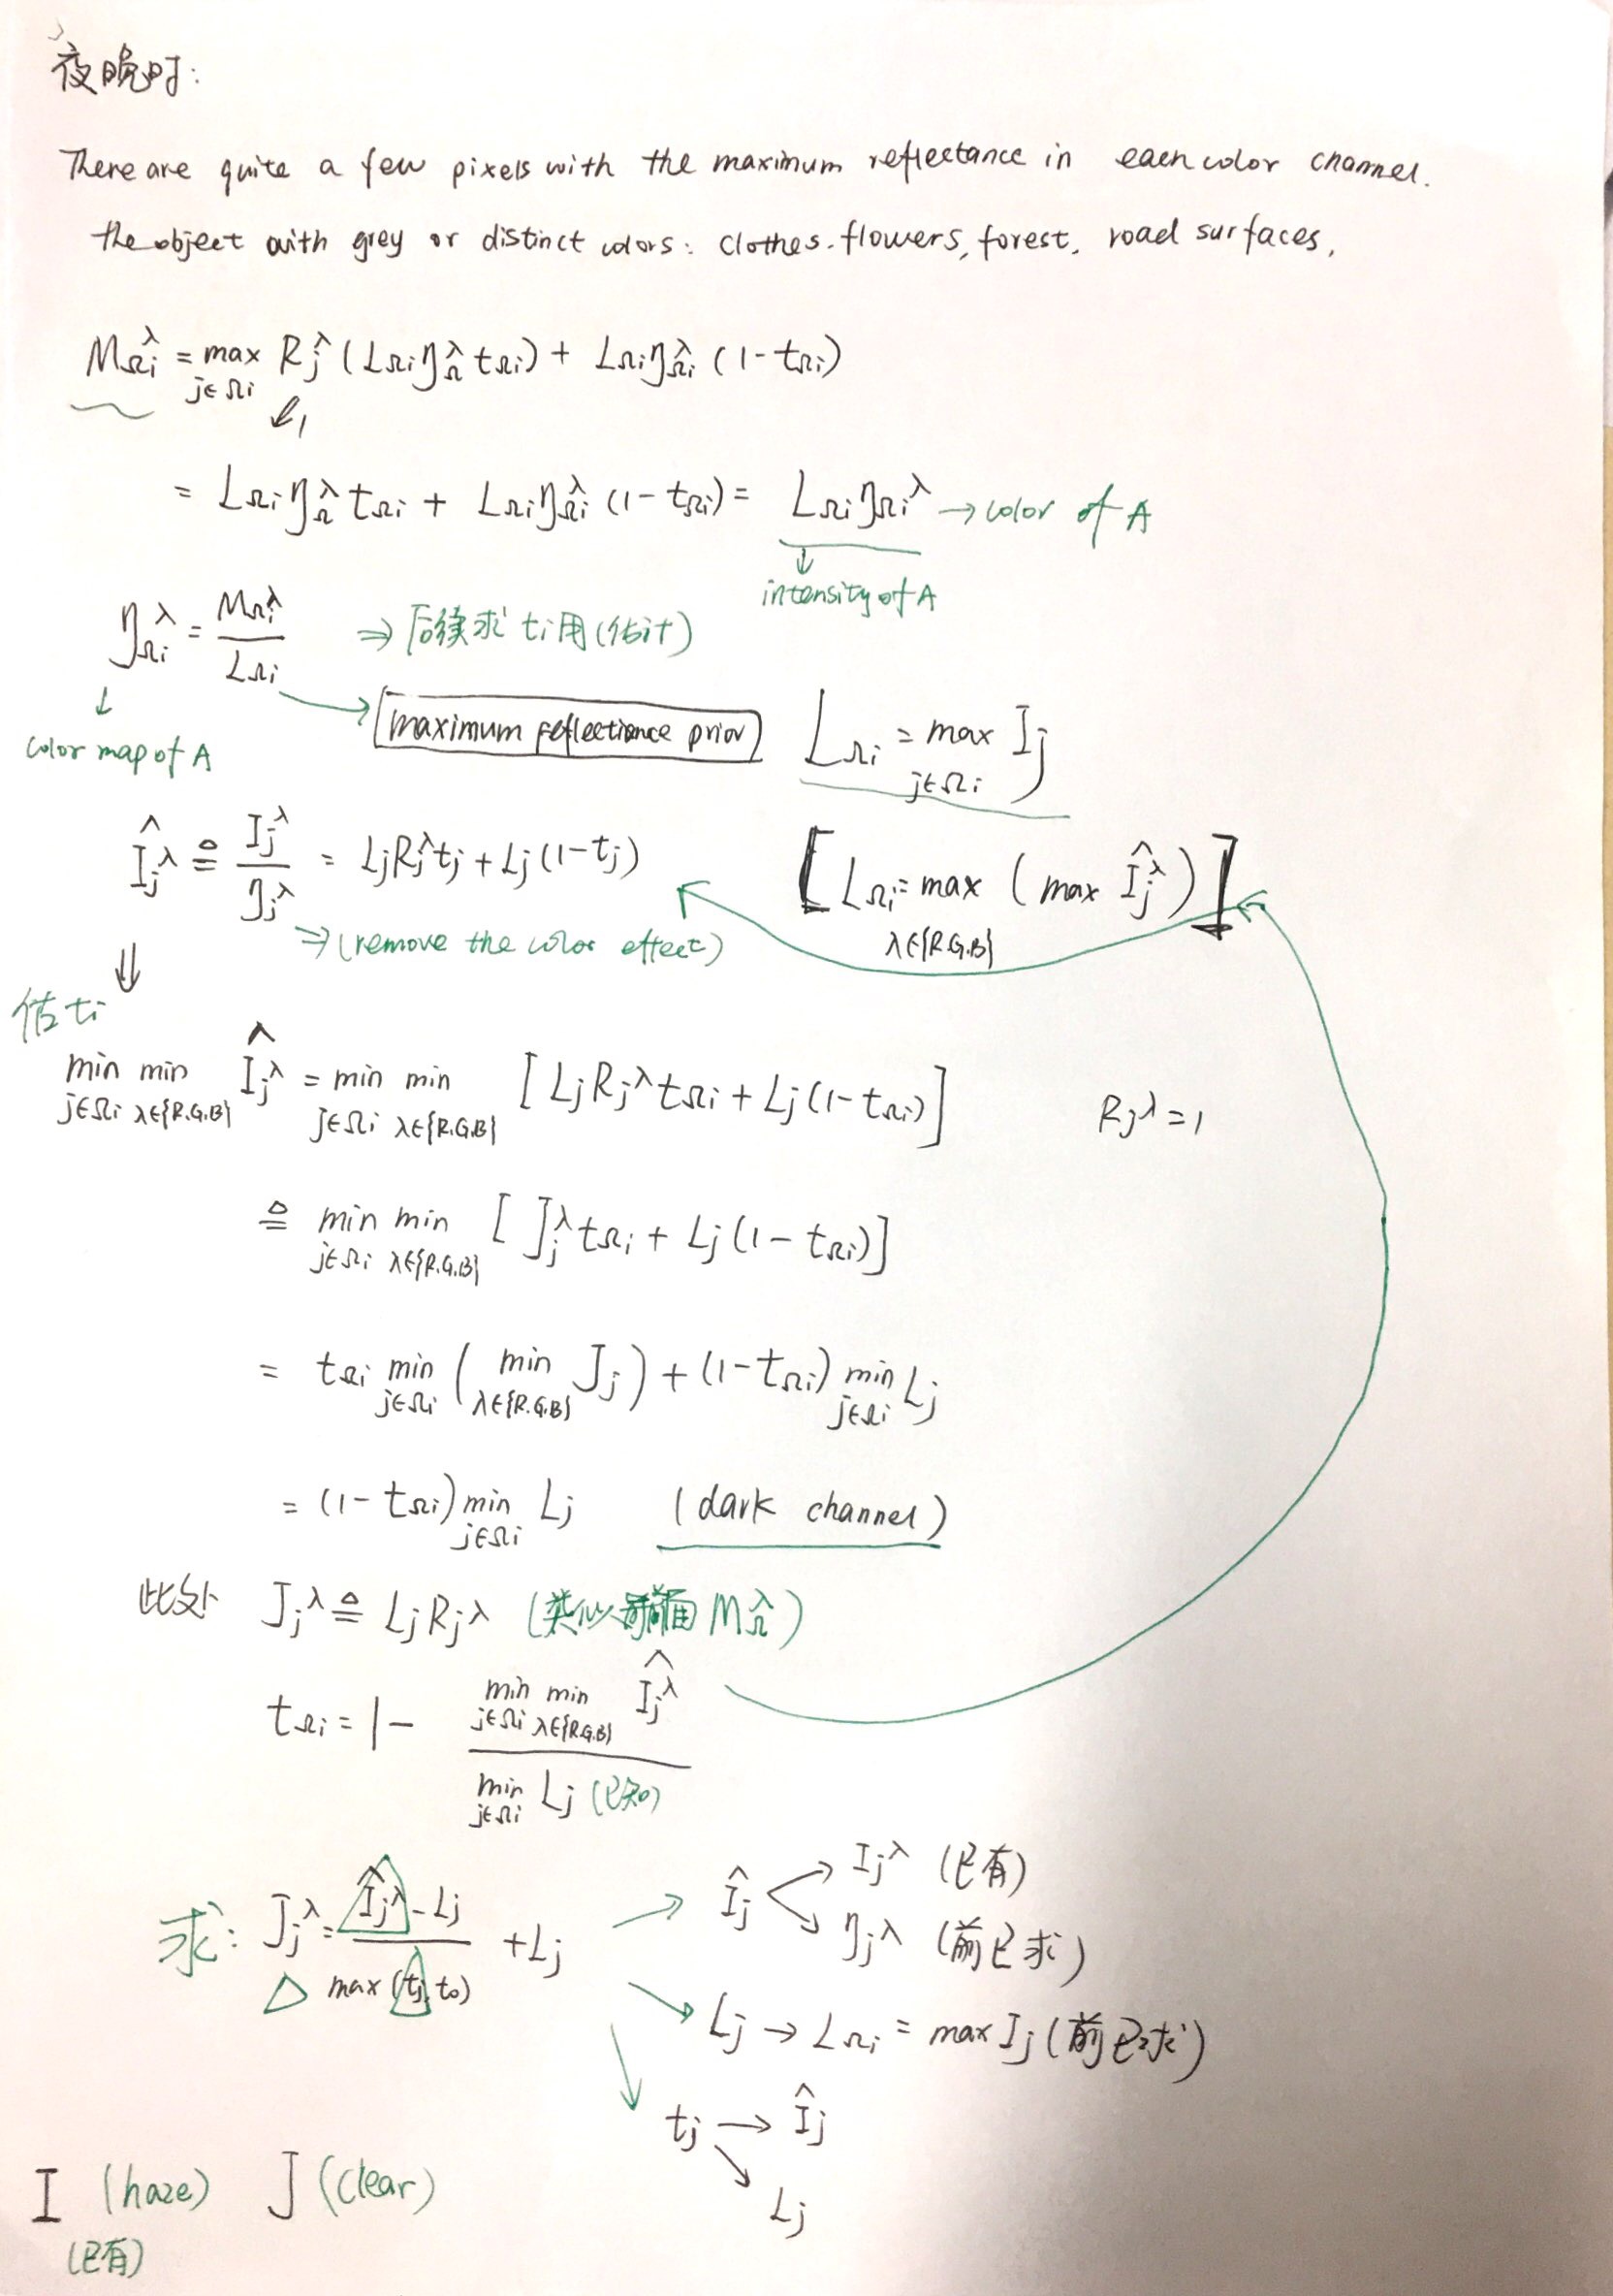 夜晚时:
There are quite a few pixels with the maximum reflectance in each color channel.
the object with grey or distinct colors: clothes. flowers, forest. road surfaces,
M_{Ωi}^λ = max_{j∈Ωi} R_j^λ (L_{Ωi} η_Ω^λ t_{Ωi}) + L_{Ωi} η_{Ωi}^λ (1-t_{Ωi})
↙1
= L_{Ωi} η_Ω^λ t_{Ωi} + L_{Ωi} η_{Ωi}^λ (1-t_{Ωi}) = L_{Ωi} η_{Ωi}^λ → color of A
↓
intensity of A
η_{Ωi}^λ = M_{Ωi}^λ / L_{Ωi} ⇒ 后续求 ti 用(估计)
↓
color map of A
→ maximum reflectance prior L_{Ωi} = max_{j∈Ωi} I_j
Î_j^λ ≜ I_j^λ / η_j^λ = L_j R_j^λ t_j + L_j (1-t_j) [L_{Ωi} = max_{λ∈{R.G.B}} (max Î_j^λ)]
⇒ (remove the color effect)
⇓
估 ti
min_{j∈Ωi} min_{λ∈{R.G.B}} Î_j^λ = min_{j∈Ωi} min_{λ∈{R.G.B}} [L_j R_j^λ t_{Ωi} + L_j (1-t_{Ωi})] R_j^λ = 1
≜ min_{j∈Ωi} min_{λ∈{R.G.B}} [J_j^λ t_{Ωi} + L_j (1-t_{Ωi})]
= t_{Ωi} min_{j∈Ωi} (min_{λ∈{R.G.B}} J_j) + (1-t_{Ωi}) min_{j∈Ωi} L_j
= (1-t_{Ωi}) min_{j∈Ωi} L_j (dark channel)
此处 J_j^λ ≜ L_j R_j^λ (类似前面 M_Ω^λ)
t_{Ωi} = 1 - min_{j∈Ωi} min_{λ∈{R.G.B}} Î_j^λ / min_{j∈Ωi} L_j (已知)
求: J_j^λ = (Î_j^λ - L_j) / max(t_j, t_0) + L_j
△
→ Î_j → I_j^λ (已有)
↘ η_j^λ (前已求)
↘ L_j → L_{Ωi} = max I_j (前已求)
↓ t_j → Î_j
↘ L_j
I (haze) J (clear)
(已有)